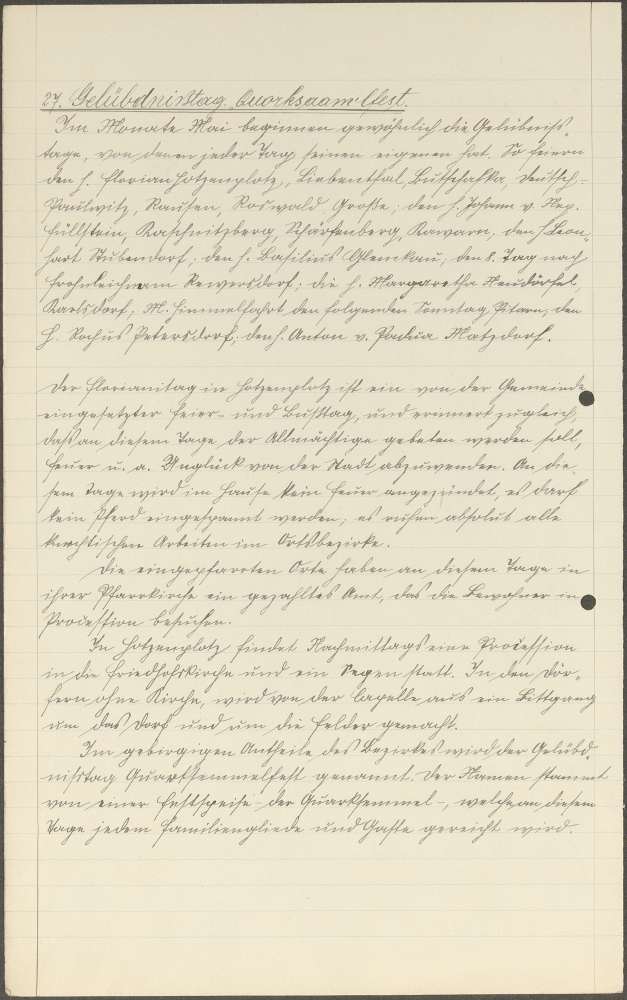 27. Gelübdnißtag. Quorksaam'lfest.
Im Monate Mai beginnen gewöhnlich die Gelübniß-
tage, von denen jeder Tag seinen eigenen hat. So feiern
den h. Florian Hotzenplotz, Liebenthal, Butschafka, Deutsch-
Paulwitz, Rausen, Roswald, Große; den h. Johann v. Nep.
Füllstein, Kaschnitzberg, Schärfenberg, Kawarn; den h. Leon-
hart Stubendorf; den h. Basilius Glemkau, den 8. Tag nach
Frohnleichnam Rewersdorf; die h. Margaretha Neudörfel,
Karlsdorf; M. Himmelfahrt den folgenden Sonntag Pitarn; den
h. Rochus Petersdorf; den h. Anton v. Padua Matzdorf.
Der Florianitag in Hotzenplotz ist ein von der Gemeinde
eingesetzter Feier- und Bußtag, und erinnert zugleich,
daß an diesem Tage der Allmächtige gebeten werden soll,
Feuer u. a. Unglück von der Stadt abzuwenden. An die-
sem Tage wird im Hause kein Feuer angezündet, es darf
kein Pferd eingespannt werden; es ruhen absolut alle
knechtischen Arbeiten im Ortsbezirke.
Die eingepfarrten Orte haben an diesem Tage in
ihrer Pfarrkirche ein gezahltes Amt, das die Bewohner in
Procession besuchen.
In Hotzenplotz findet Nachmittags eine Procession
in die Friedhofskirche und ein Segen statt. In den Dör-
fern ohne Kirche, wird von der Capelle aus ein Bittgang
um das Dorf und um die Felder gemacht.
Im gebirgigen Antheile des Bezirkes wird der Gelübd-
nißtag Quarksemmelfest genannt. Der Namen stammt
von einer Festspeise - der Quarksemmel -, welche an diesem
Tage jedem Familiengliede und Gaste gereicht wird.